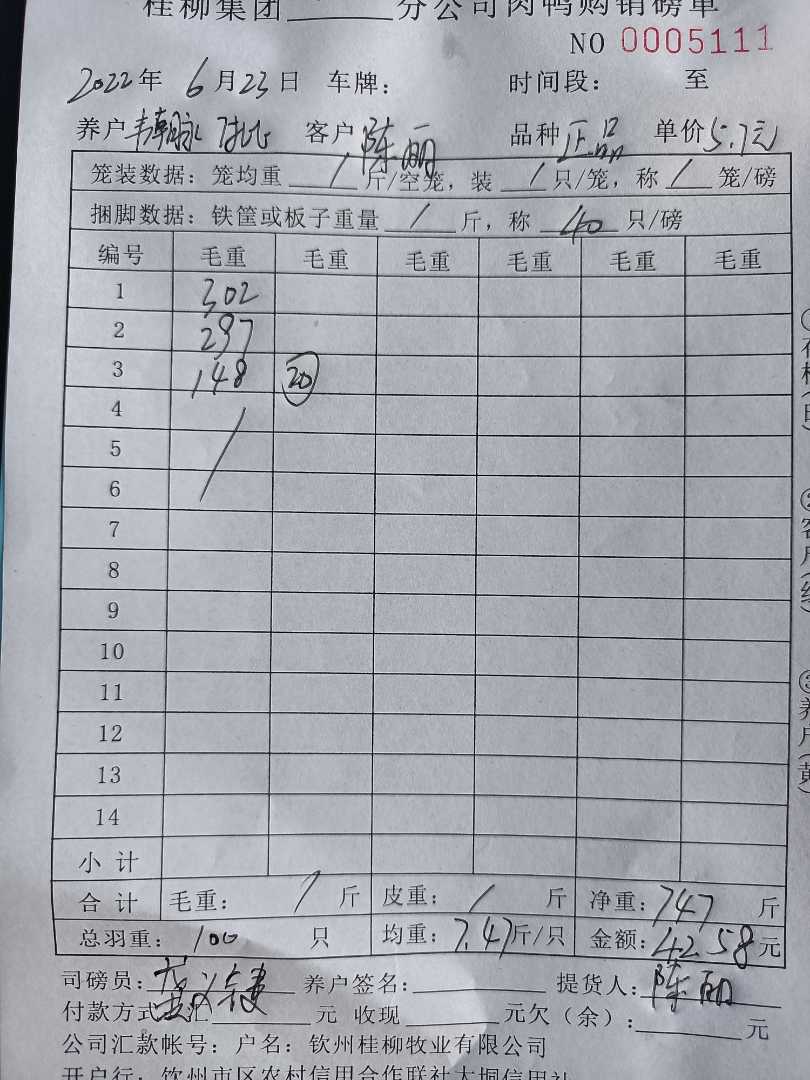 桂柳集团______分公司肉鸭购销磅单
NO 0005111
2022年 6月23日 车牌： 时间段： 至
养户 客户 陈丽 品种 正品 单价 5.7元
笼装数据：笼均重 / 斤/空笼，装 / 只/笼，称 / 笼/磅
捆脚数据：铁筐或板子重量 / 斤，称 40 只/磅
编号 毛重 毛重 毛重 毛重 毛重 毛重
1 302
2 297
3 148 20
4 /
5
6
7
8
9
10
11
12
13
14
小计
合计 毛重： / 斤 皮重： / 斤 净重：747 斤
总羽重：100 只 均重：7.47斤/只 金额：4258元
司磅员： 养户签名： 提货人：陈丽
付款方式 汇 元 收现 元欠（余）： 元
公司汇款帐号：户名：钦州桂柳牧业有限公司
开户行：钦州市区农村信用合作联社大垌信用社